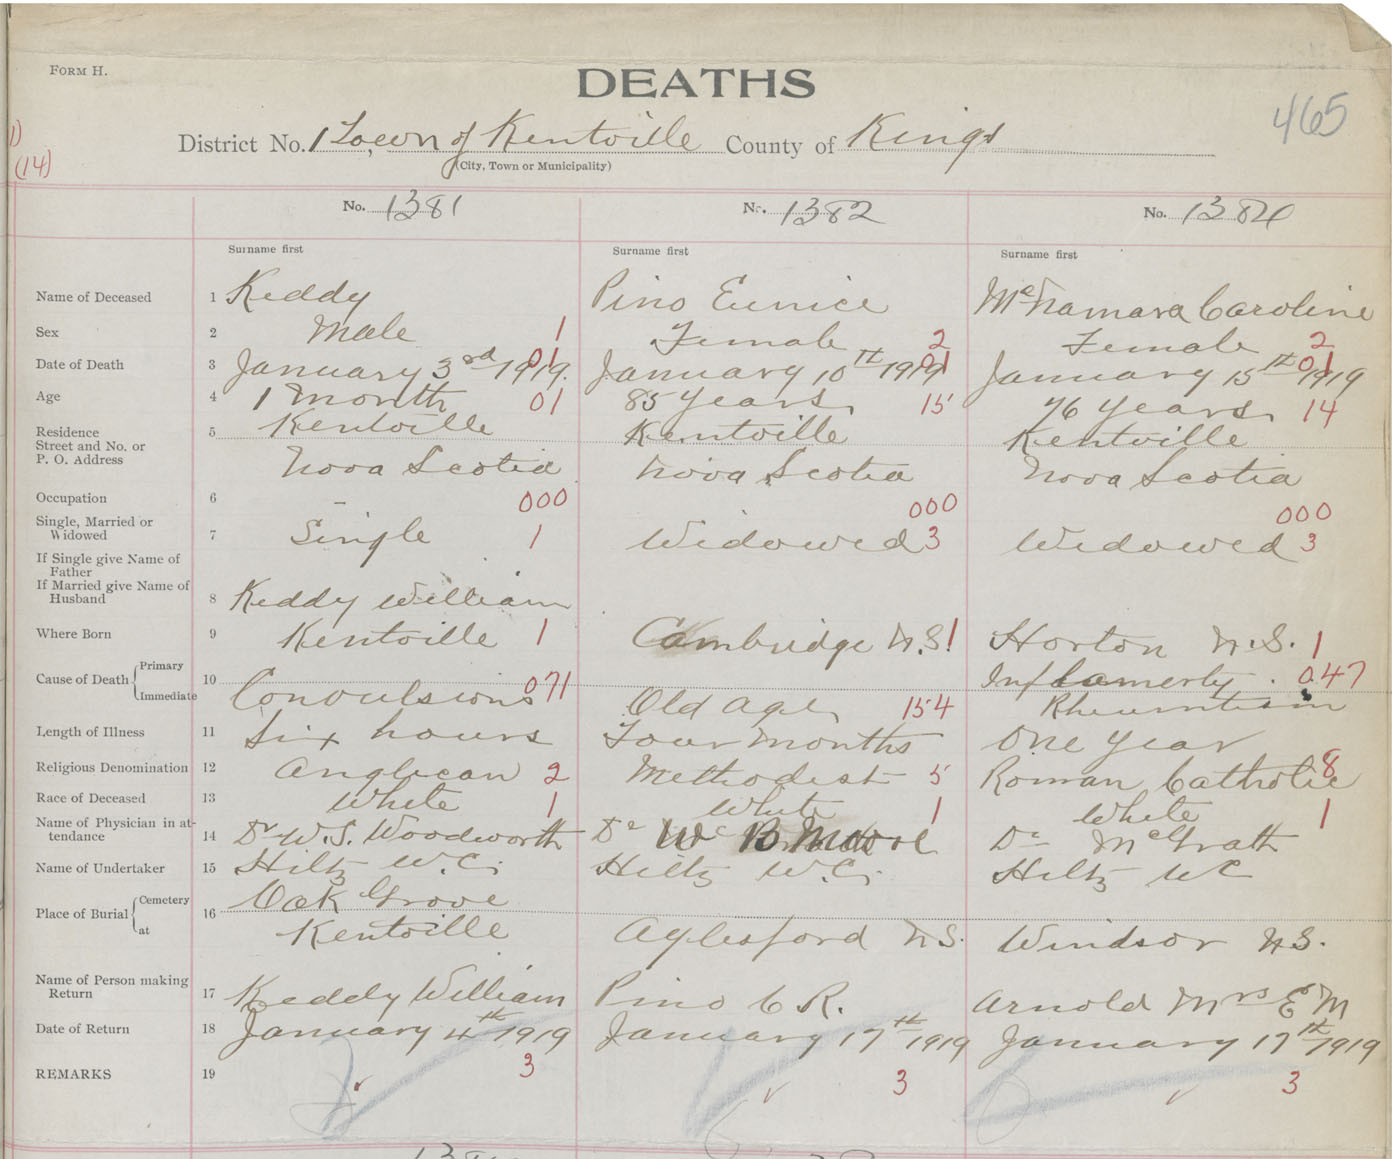 FORM H.
DEATHS
465
1)
(14)
District No. 1 Town of Kentville County of Kings
(City, Town or Municipality)
No. 1381 No. 1382 No. 1384
Surname first Surname first Surname first
Name of Deceased 1 Keddy Pino Eunice McNamara Caroline
Sex 2 Male 1 Female 2 Female 2
Date of Death 3 January 3rd 1919. 01 January 10th 1919 01 January 15th 1919 01
Age 4 1 Month 01 85 years 15 76 years 14
Residence 5 Kentville Kentville Kentville
Street and No. or
P. O. Address Nova Scotia Nova Scotia Nova Scotia
Occupation 6 – 000 000 000
Single, Married or
Widowed 7 Single 1 Widowed 3 Widowed 3
If Single give Name of
Father
If Married give Name of
Husband 8 Keddy William
Where Born 9 Kentville 1 Cambridge N.S. 1 Horton N.S. 1
Cause of Death Primary 10 Inflamerty . 047
Immediate Convulsions 071 Old Age 154 Rheumtism
Length of Illness 11 Six hours Four Months One Year
Religious Denomination 12 Anglican 2 Methodist 5 Roman Catholic 8
Race of Deceased 13 White 1 White 1 White 1
Name of Physician in at-
tendance 14 Dr W.S. Woodworth Dr W B Moore Dr McGrath
Name of Undertaker 15 Hiltz W.C. Hiltz W.C. Hiltz W C
Place of Burial Cemetery 16 Oak Grove
at Kentville Aylesford N.S. Windsor N.S.
Name of Person making
Return 17 Keddy William Pino C R. Arnold Mrs E M
Date of Return 18 January 4th 1919 January 17th 1919 January 17th 1919
REMARKS 19 3 3 3